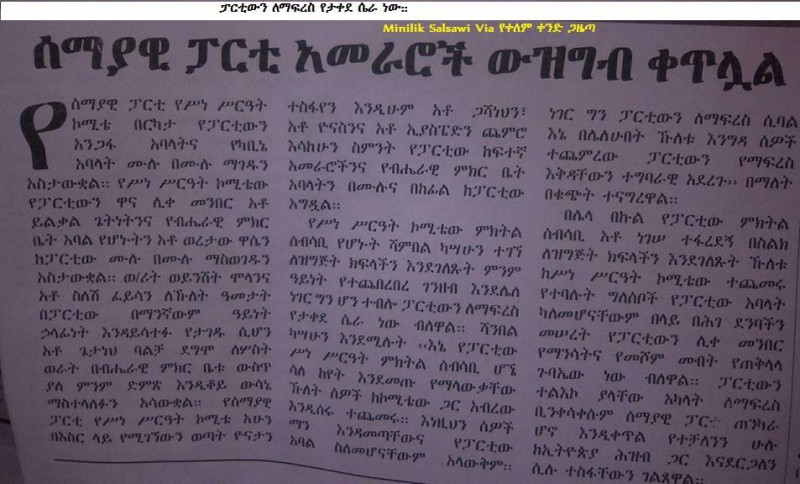 ፓርቲውን ለማፍረስ የታቀደ ሴራ ነው።
Minilik Salsawi Via የቀለም ቀንድ ጋዜጣ
ሰማያዊ ፓርቲ አመራሮች ውዝግብ ቀጥሏል
የሰማያዊ ፓርቲ የሥነ ሥርዓት
ኮሚቴ በርካታ የፓርቲውን
አንጋፋ አባላትና የካቢኔ
አባላት ሙሉ በሙሉ ማገዱን
አስታውቋል። የሥነ ሥርዓት ኮሚቴው
የፓርቲውን ዋና ሊቀ መንበር አቶ
ይልቃል ጌትነትንና የብሔራዊ ምክር
ቤት አባል የሆኑትን አቶ ወረታው ዋሴን
ከፓርቲው ሙሉ በሙሉ ማስወገዱን
አስታውቋል። ወ/ሪት ወይንሸት ሞላንና
አቶ ስለሺ ፈይሳን ለኹለት ዓመታት
በፓርቲው በማንኛውም ዓይነት
ኃላፊነት እንዳይሳተፉ የታገዱ ሲሆን
አቶ ጌታነህ ባልቻ ደግሞ ለሦስት
ወራት በብሔራዊ ምክር ቤቱ ውስጥ
ያለ ምንም ድምጽ እንዲቆይ ውሳኔ
ማስተላለፉን አሳውቋል። የሰማያዊ
ፓርቲ የሥነ ሥርዓት ኮሚቴ አሁን
በእስር ላይ የሚገኘውን ወጣት ዮናታን
ተስፋየን እንዲሁም አቶ ጋሻነህን፣
አቶ ዮናስንና አቶ ኢያስፔድን ጨምሮ
እሳከሁን ስምንት የፓርቲው ከፍተኛ
አመራሮችንና የብሔራዊ ምክር ቤት
አባላትን በሙሉና በከፊል ከፓርቲው
አግዷል።
የሥነ ሥርዓት ኮሚቴው ምክትል
ሰብሳቢ የሆኑት ሻምበል ካሣሁን ተገኝ
ለዝግጅት ክፍላችን እንደገለጹት ምንም
ዓይነት የተጨበረበረ ገንዘብ እንደሌለ
ነገር ግን ሆን ተብሎ ፓርቲውን ለማፍረስ
የታቀደ ሴራ ነው ብለዋል። ሻንበል
ካሣሁን እንደሚሉት ‹‹እኔ የፓርቲው
ሥነ ሥርዓት ምክትል ሰብሳቢ ሆኜ
ሳለ ከየት እንደመጡ የማላውቃቸው
ኹለት ሰዎች ከኮሚቴው ጋር አብረው
እንዲሰሩ ተጨመሩ። እነዚህን ሰዎች
ማን እንዳመጣቸውና የፓርቲው
አባል ስለመሆናቸውም አላውቅም።
ነገር ግን ፓርቲውን ለማፍረስ ሲባል
እኔ በሌለሁበት ኹለቱ እንግዳ ሰዎች
ተጨምረው ፓርቲውን የማፍረስ
እቅዳቸውን ተግባራዊ አደረጉ›› በማለት
በቁጭት ተናግረዋል።
በሌላ በኩል የፓርቲው ምክትል
ሰብሳቢ አቶ ነገሠ ተፋረደኝ በስልክ
ለዝግጅት ክፍላችን እንደገለጹት ኹለቱ
ከሥነ ሥርዓት ኮሚቴው ተጨመሩ
የተባሉት ግለሰቦች የፓርቲው አባላት
ካለመሆናቸውም በላይ በሕገ ደንባችን
መሠረት የፓርቲውን ሊቀ መንበር
የማንሳትና የመሾም መብት የጠቅላላ
ጉባኤው ነው ብለዋል። ፓርቲውን
ተልእኮ ያላቸው አካላት ለማፍረስ
ቢንቀሳቀሱም ሰማያዊ ጠንካራ
ሆኖ እንዲቀጥል የተቻለንን ሁሉ
ከኢትዮጵያ ሕዝብ ጋር እናደርጋለን
ሲሉ ተስፋቸውን ገልጸዋል።